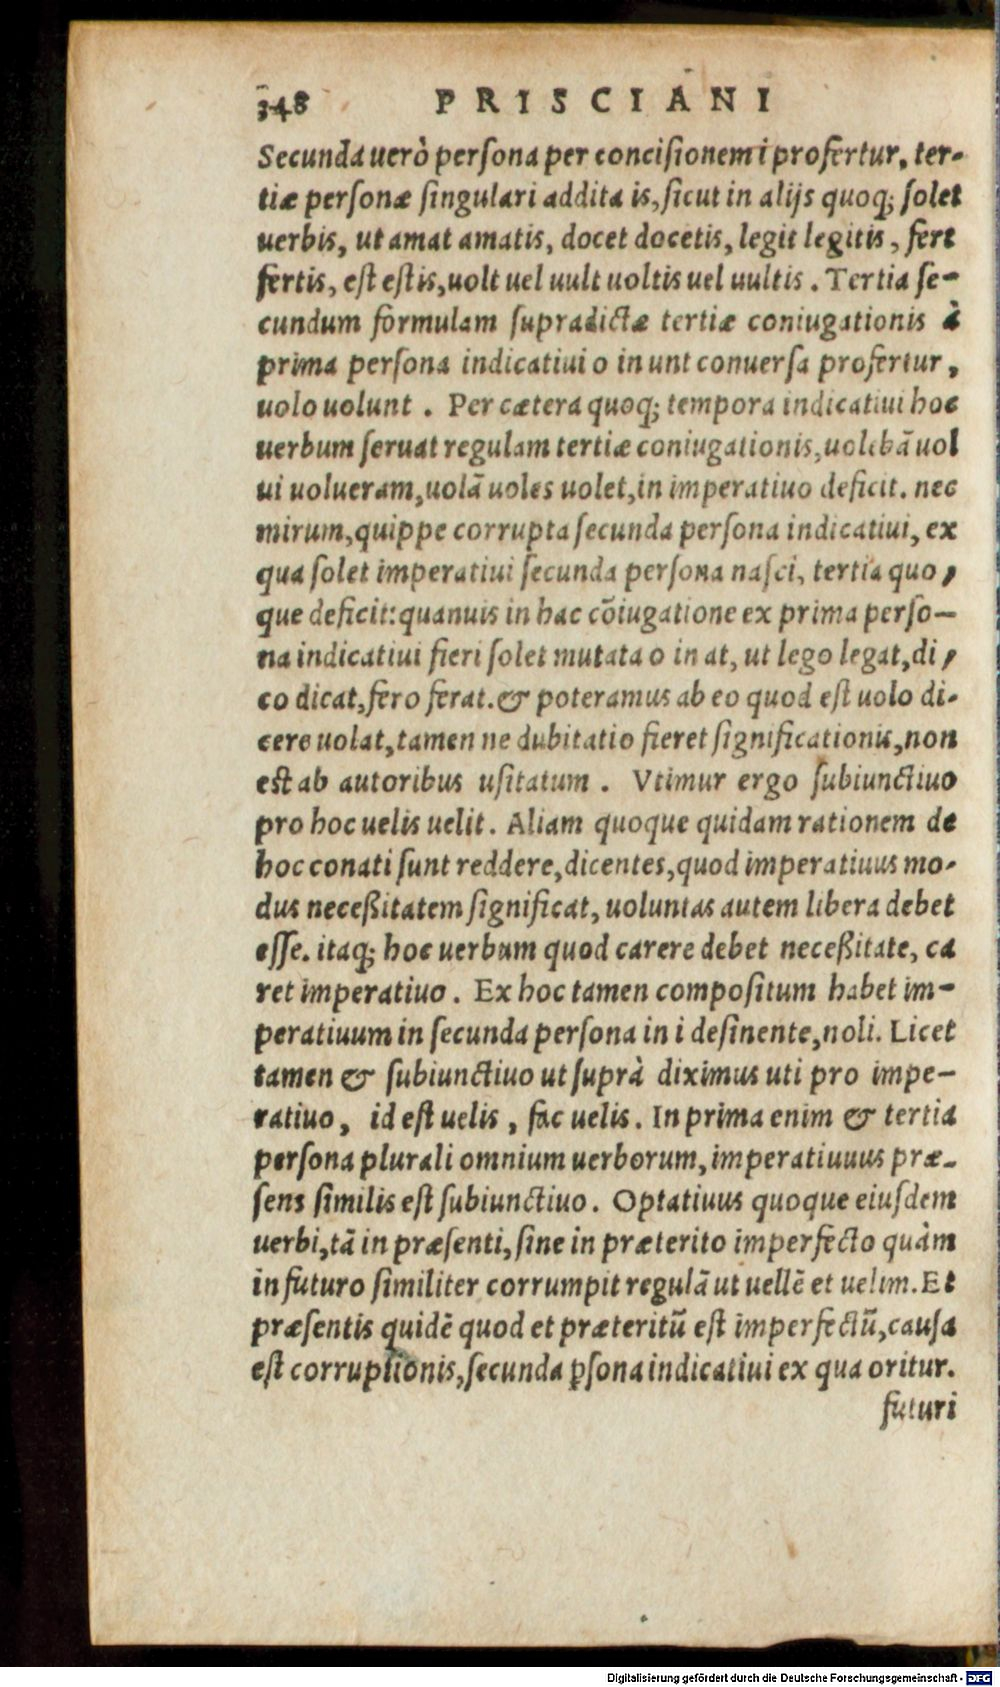 348 PRISCIANI
Secunda uerò persona per concisionem i profertur, ter-
tiæ personæ singulari addita is, sicut in alijs quoq; solet
uerbis, ut amat amatis, docet docetis, legit legitis, fert
fertis, est estis, uolt uel uult uoltis uel uultis. Tertia se-
cundum formulam supradictæ tertiæ coniugationis à
prima persona indicatiui o in unt conuersa profertur,
uolo uolunt. Per cætera quoq; tempora indicatiui hoc
uerbum seruat regulam tertiæ coniugationis, uolebā uol
ui uolueram, uolā uoles uolet, in imperatiuo deficit. nec
mirum, quippe corrupta secunda persona indicatiui, ex
qua solet imperatiui secunda persona nasci, tertia quo,
que deficit: quanuis in hac cōiugatione ex prima perso-
na indicatiui fieri solet mutata o in at, ut lego legat, di,
co dicat, fero ferat. & poteramus ab eo quod est uolo di-
cere uolat, tamen ne dubitatio fieret significationis, non
est ab autoribus usitatum. Vtimur ergo subiunctiuo
pro hoc uelis uelit. Aliam quoque quidam rationem de
hoc conati sunt reddere, dicentes, quod imperatiuus mo-
dus neceßitatem significat, uoluntas autem libera debet
esse. itaq; hoc uerbum quod carere debet neceßitate, ca
ret imperatiuo. Ex hoc tamen compositum habet im-
peratiuum in secunda persona in i desinente, noli. Licet
tamen & subiunctiuo ut suprà diximus uti pro impe-
ratiuo, id est uelis, fac uelis. In prima enim & tertia
persona plurali omnium uerborum, imperatiuuus præ-
sens similis est subiunctiuo. Optatiuus quoque eiusdem
uerbi, tā in præsenti, sine in præterito imperfecto quàm
in futuro similiter corrumpit regulā ut uellē et uelim. Et
præsentis quidē quod et præteritū est imperfectū, causa
est corruptionis, secunda p̱sona indicatiui ex qua oritur.
futuri
Digitalisierung gefördert durch die Deutsche Forschungsgemeinschaft - DFG